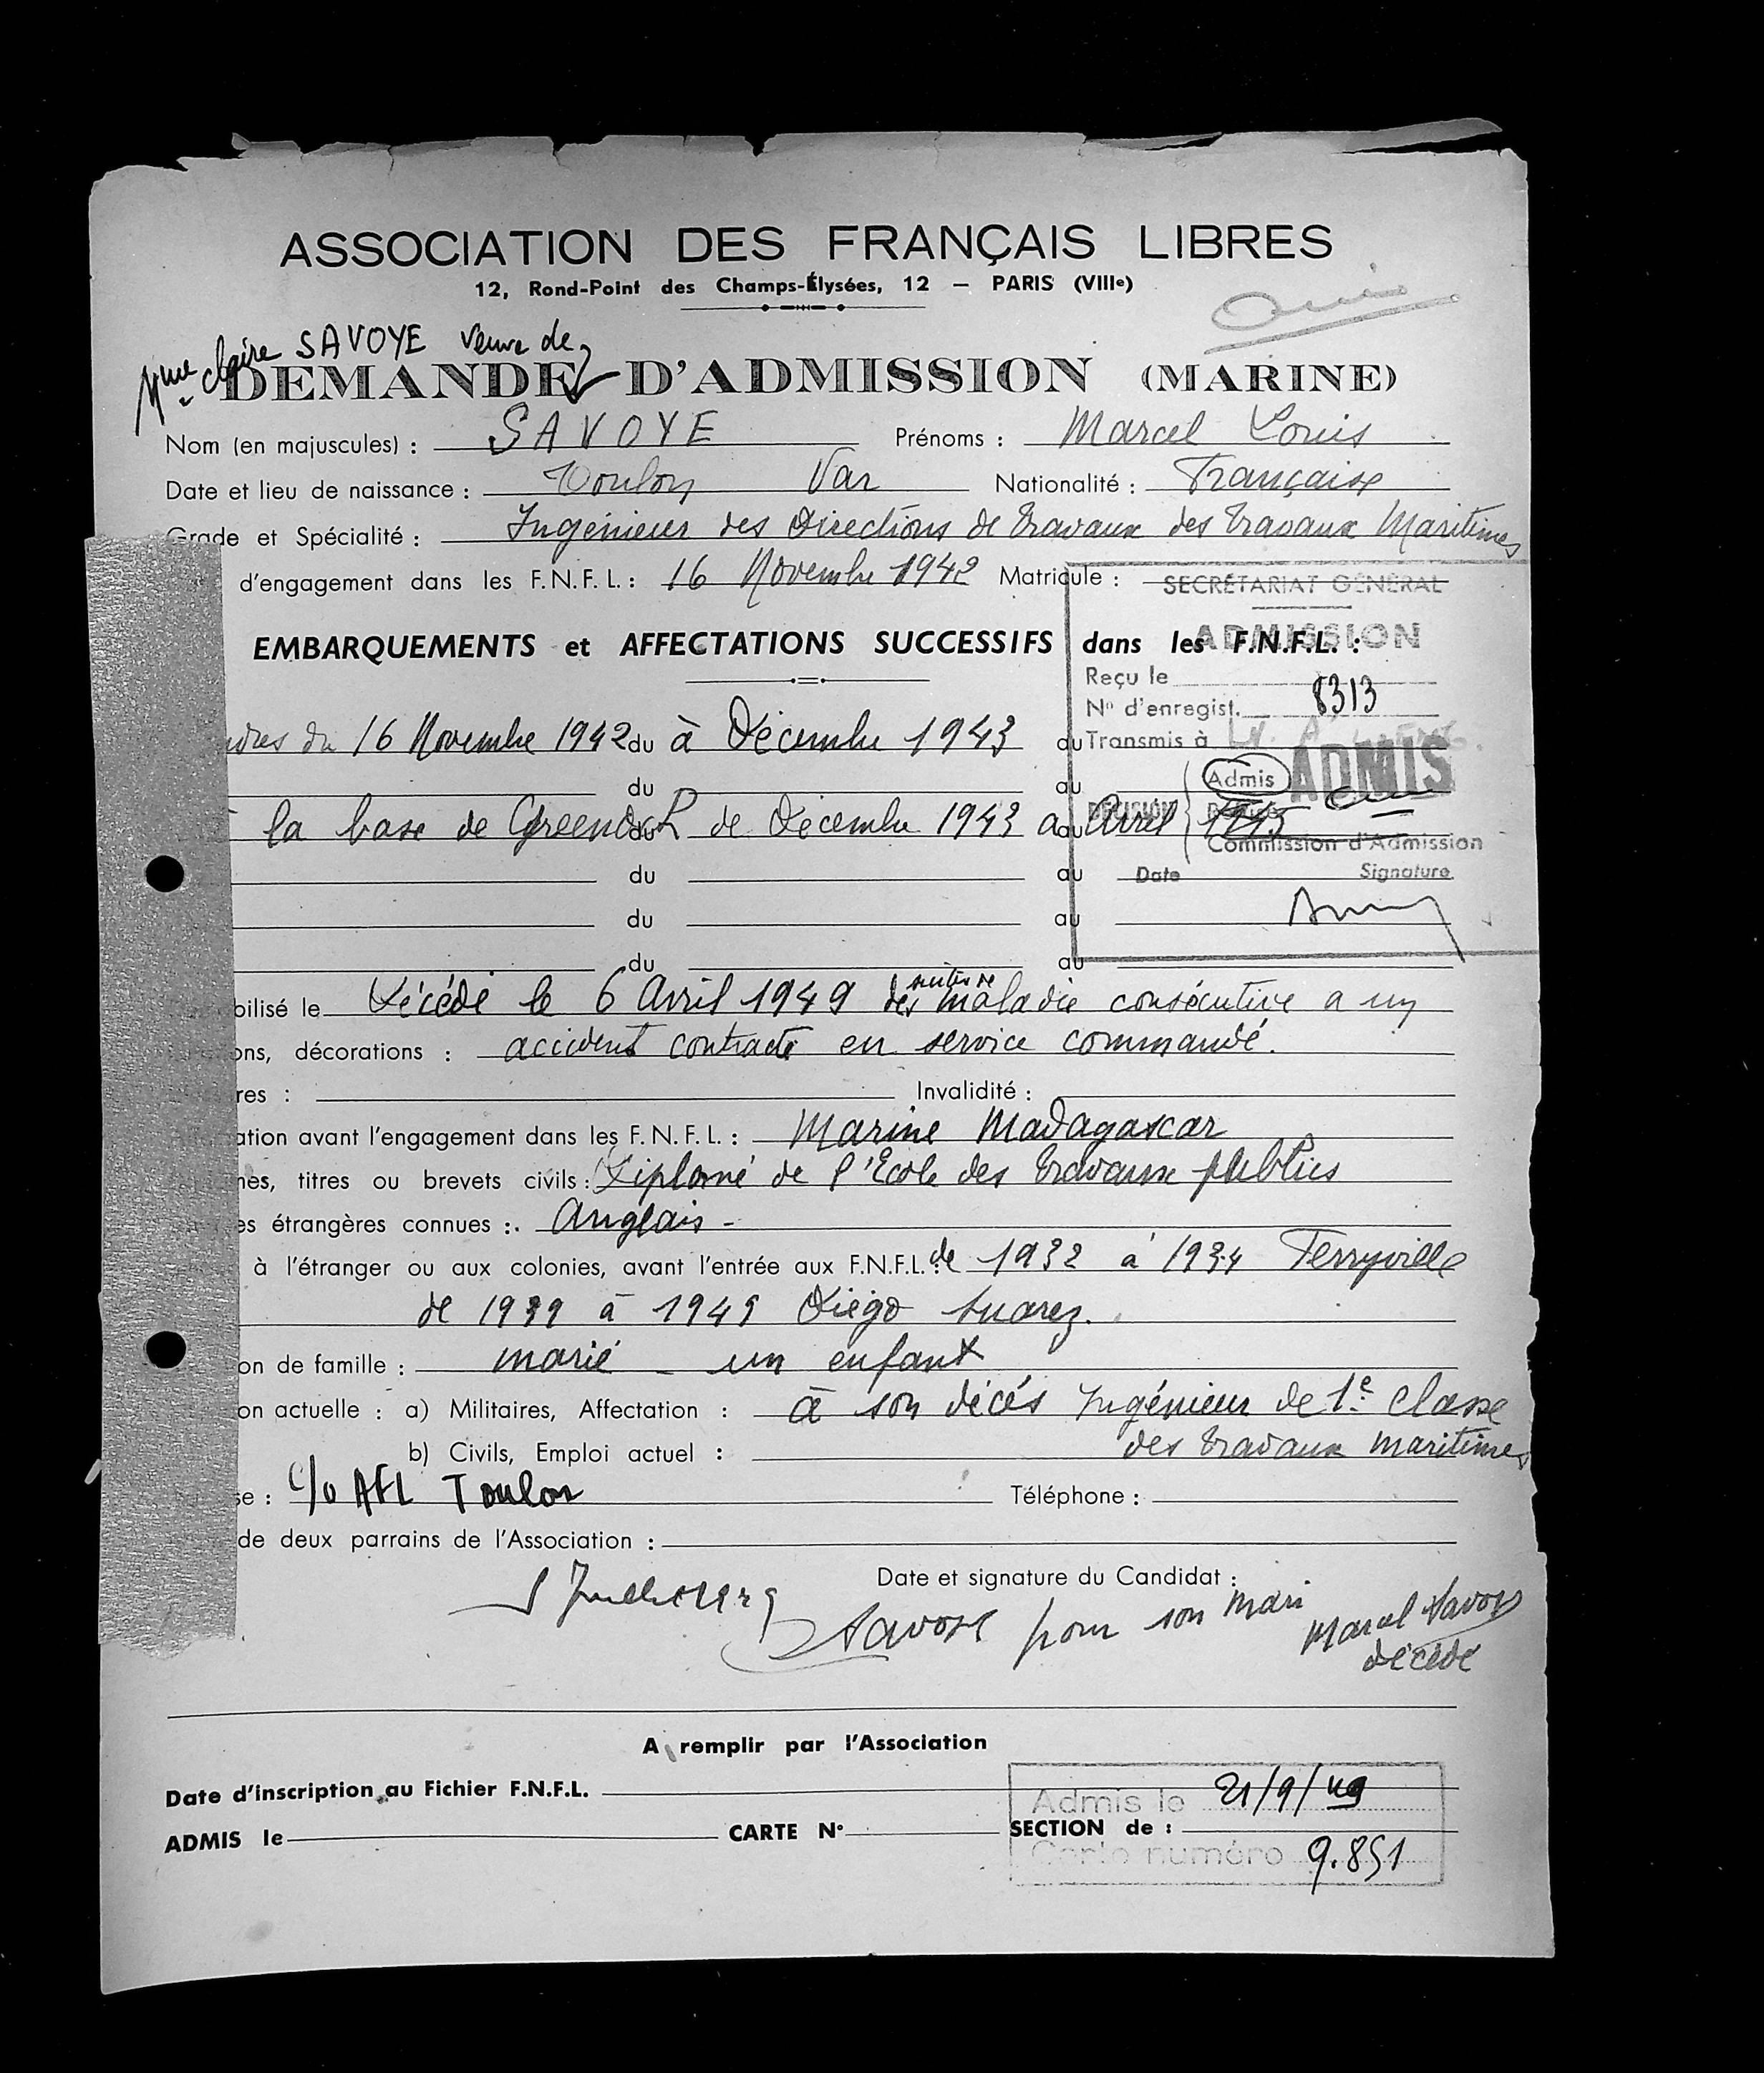 ASSOCIATION DES FRANÇAIS LIBRES
12, Rond-Point des Champs-Élysées, 12 — PARIS (VIIIe)
Mme claire SAVOYE veuve de
DEMANDE D'ADMISSION (MARINE)
Nom (en majuscules) : SAVOYE Prénoms : Marcel Louis
Date et lieu de naissance : Toulon Var Nationalité : Française
Grade et Spécialité : Ingénieur des Directions de travaux des travaux Maritimes
d'engagement dans les F.N.F.L. : 16 Novembre 1942 Matricule :
SECRÉTARIAT GÉNÉRAL
EMBARQUEMENTS et AFFECTATIONS SUCCESSIFS dans les F.N.F.L. :
ADMISSION
Reçu le
No d'enregist. 8313
dres du 16 Novembre 1942 du à Décembre 1943 au
Transmis à
du au
Admis ADMIS
la base de Greenock du de Décembre 1943 a au Avril 1945
DÉCISION
Commission d'Admission
du au
Date Signature
du au
du au
bilisé le Décédé le 6 Avril 1949 des suites de maladie consécutive a un
ons, décorations : accident contracté en service commandé.
res : Invalidité :
ation avant l'engagement dans les F.N.F.L. : Marine Madagascar
es, titres ou brevets civils : Diplomé de l'Ecole des travaux publics
es étrangères connues : Anglais -
à l'étranger ou aux colonies, avant l'entrée aux F.N.F.L. : de 1932 à 1934 Ferryville
de 1939 à 1945 Diégo Suarez.
on de famille : marié - un enfant
on actuelle : a) Militaires, Affectation : à son décés Ingénieur de 1e classe
b) Civils, Emploi actuel : des travaux maritimes
se : c/o AFL Toulon Téléphone :
de deux parrains de l'Association :
Date et signature du Candidat :
Savoye pour son mari Marcel Savoye
décédé
A remplir par l'Association
Date d'inscription au Fichier F.N.F.L.
Admis le 21/9/49
ADMIS le CARTE No SECTION de :
Carte numéro 9.851